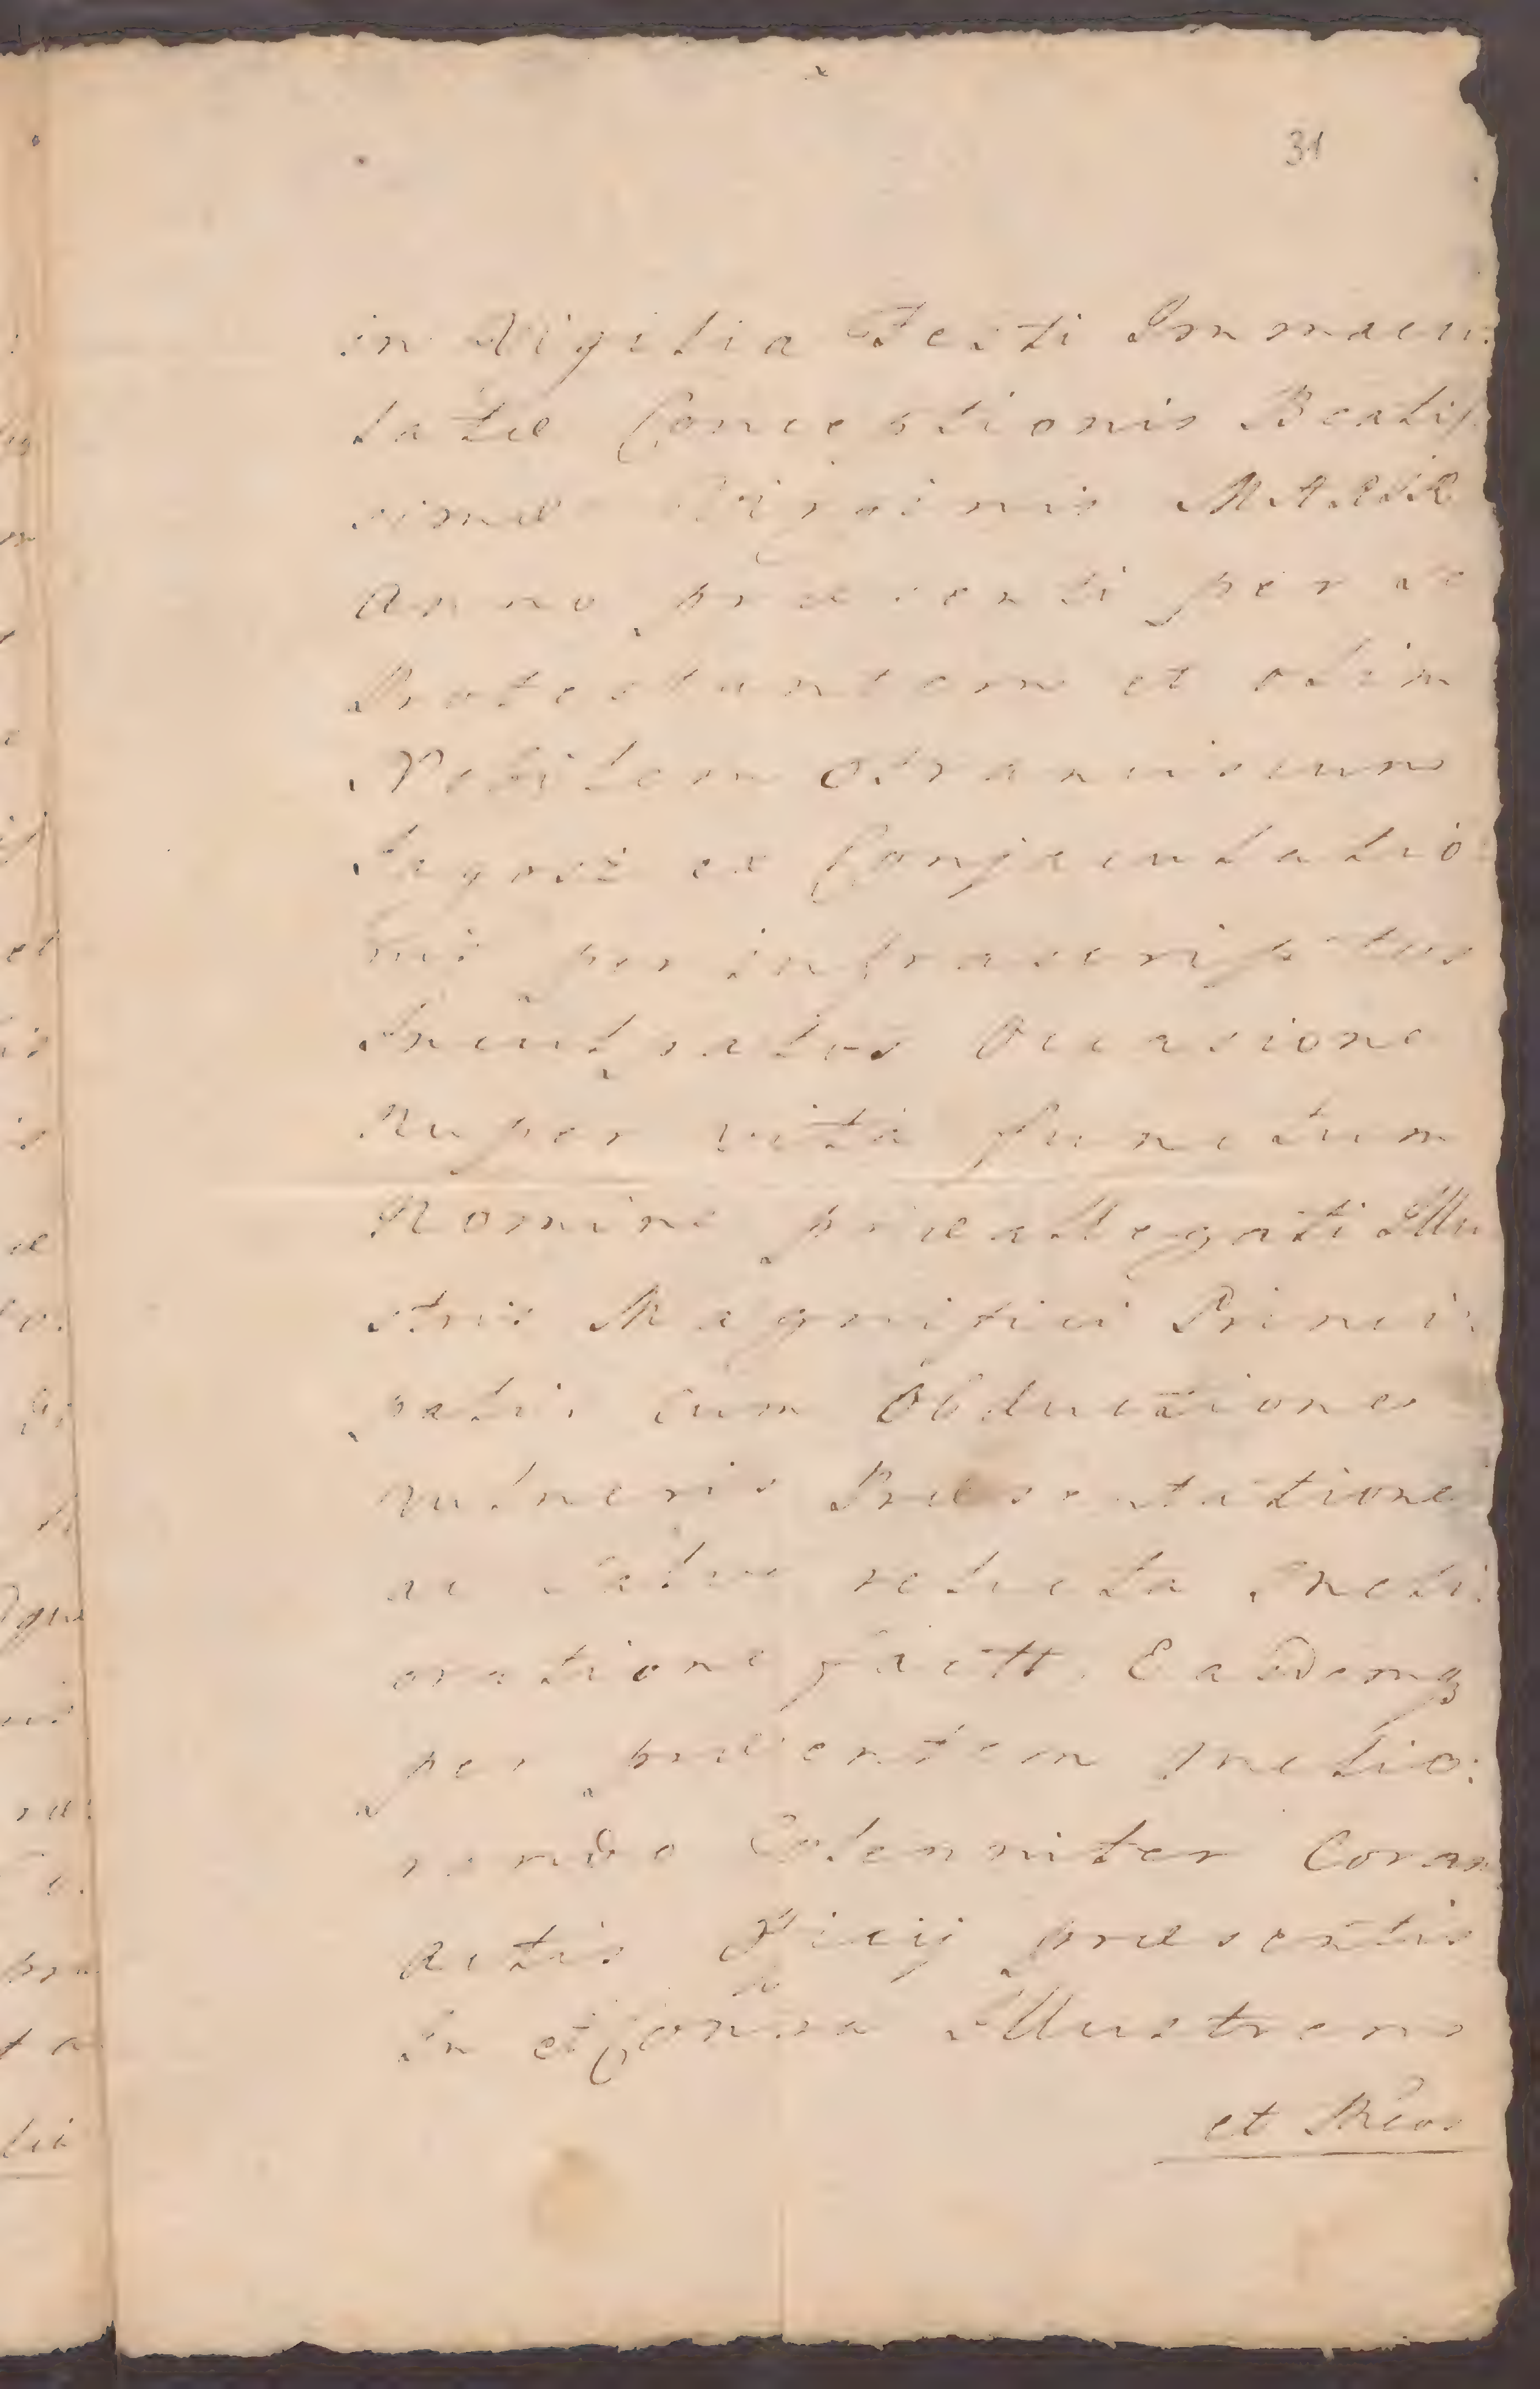 31
in Vigilia Festi Immacu:
latæ Conceptionis Beatiſ
simæ Virginis MARIÆ
Anno præsenti per se
Protestantem et olim
Nobilem Franciscum
ex Conjaculatio:
nis per infrascriptos
Inculpatos Occasione
Nuper vita functum
Nomine præallegati Illu
stris Magnifici Princi:
palis cum Obductione
vulneris Præsentatione
ac relicta meli
oratione factt. Eademq
per præsentem melio:
rando Solenniter Coram
Actis præsentis
In et Contra Illustrem
et Mcos